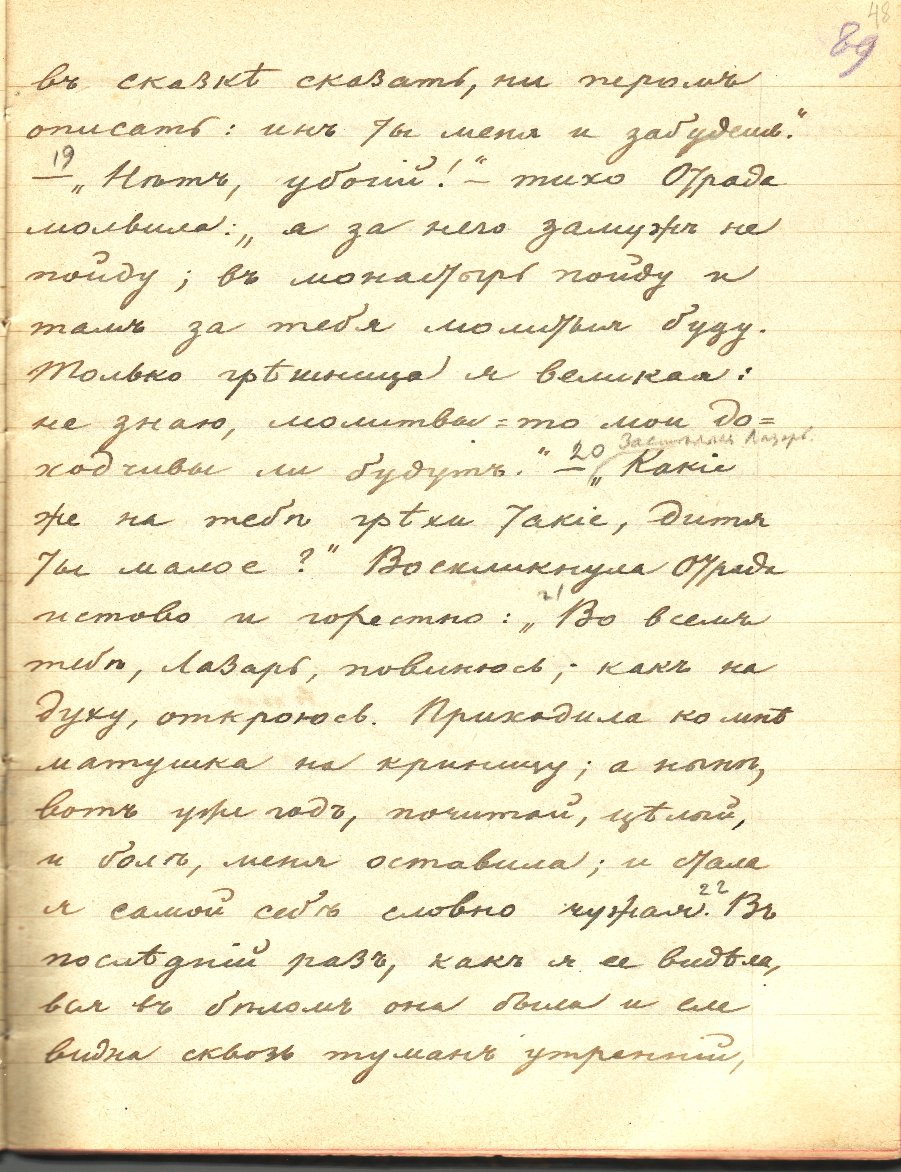 48
89
въ сказкѣ сказать, ни перомъ
описать: инъ ты меня и забудешь."
19
„Нѣтъ, убогій!" – тихо Отрада
молвила: „а за него замужъ не
пойду; въ монастырь пойду и
тамъ за тебя молиться буду.
Только грѣшница я великая:
не знаю, молитвы=то мои до=
Лазарь.
ходчивы ли будутъ." – 20 „Какіе
же на тебѣ грѣхи такіе, дитя
ты малое?" Воскликнула Отрада
истово и горестно: 21 „Во всемъ
тебѣ, Лазарь, повинюсь; какъ на
духу, откроюсь. Приходила ко мнѣ
матушка на криницу; а нынѣ,
вотъ уже годъ, почитай, цѣлый,
и болѣ, меня оставила; и стала
я самой себѣ словно чужая. 22 Въ
послѣдній разъ, какъ я ее видѣла,
вся въ бѣломъ она была и еле
видна сквозь туманъ утренній,